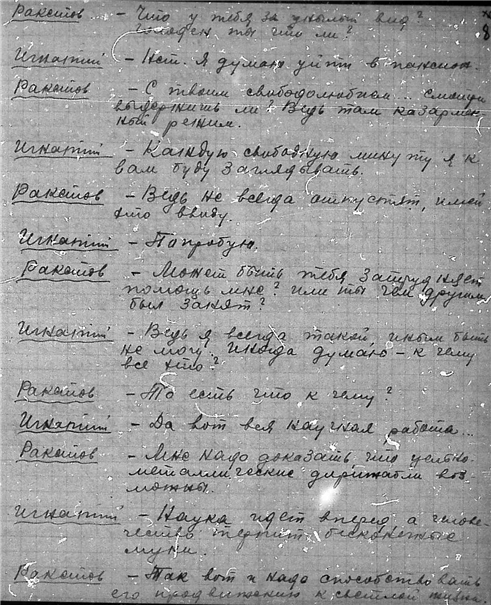 Ракетов - Что у тебя за унылый вид?
голоден ты что ли?
8
Игнатий - Нет. Я думаю уйти в пансион.
Ракетов - С твоим свободолюбием... сможешь
выдержишь ли? Ведь там казармен
ный режим.
Игнатий - Каждую свободную минуту я к
вам буду заглядывать.
Ракетов - Ведь не всегда отпустят, имей
это ввиду.
Игнатий - Попробую.
Ракетов - Может быть тебя затрудняет
помощь мне? Или ты чем другим
был занят?
Игнатий - Ведь я всегда такой, иным быть
не могу. Иногда думаю - к чему
все это?
Ракетов - То есть что к чему?
Игнатий - Да вот вся научная работа...
Ракетов - Мне надо доказать что цельно-
металлические дирижабли воз
можны.
Игнатий - Наука идет вперед а челове
чество терпит бесконечные
муки.
Ракетов - Так вот и надо способствовать
его продвижению к светлой жизни.